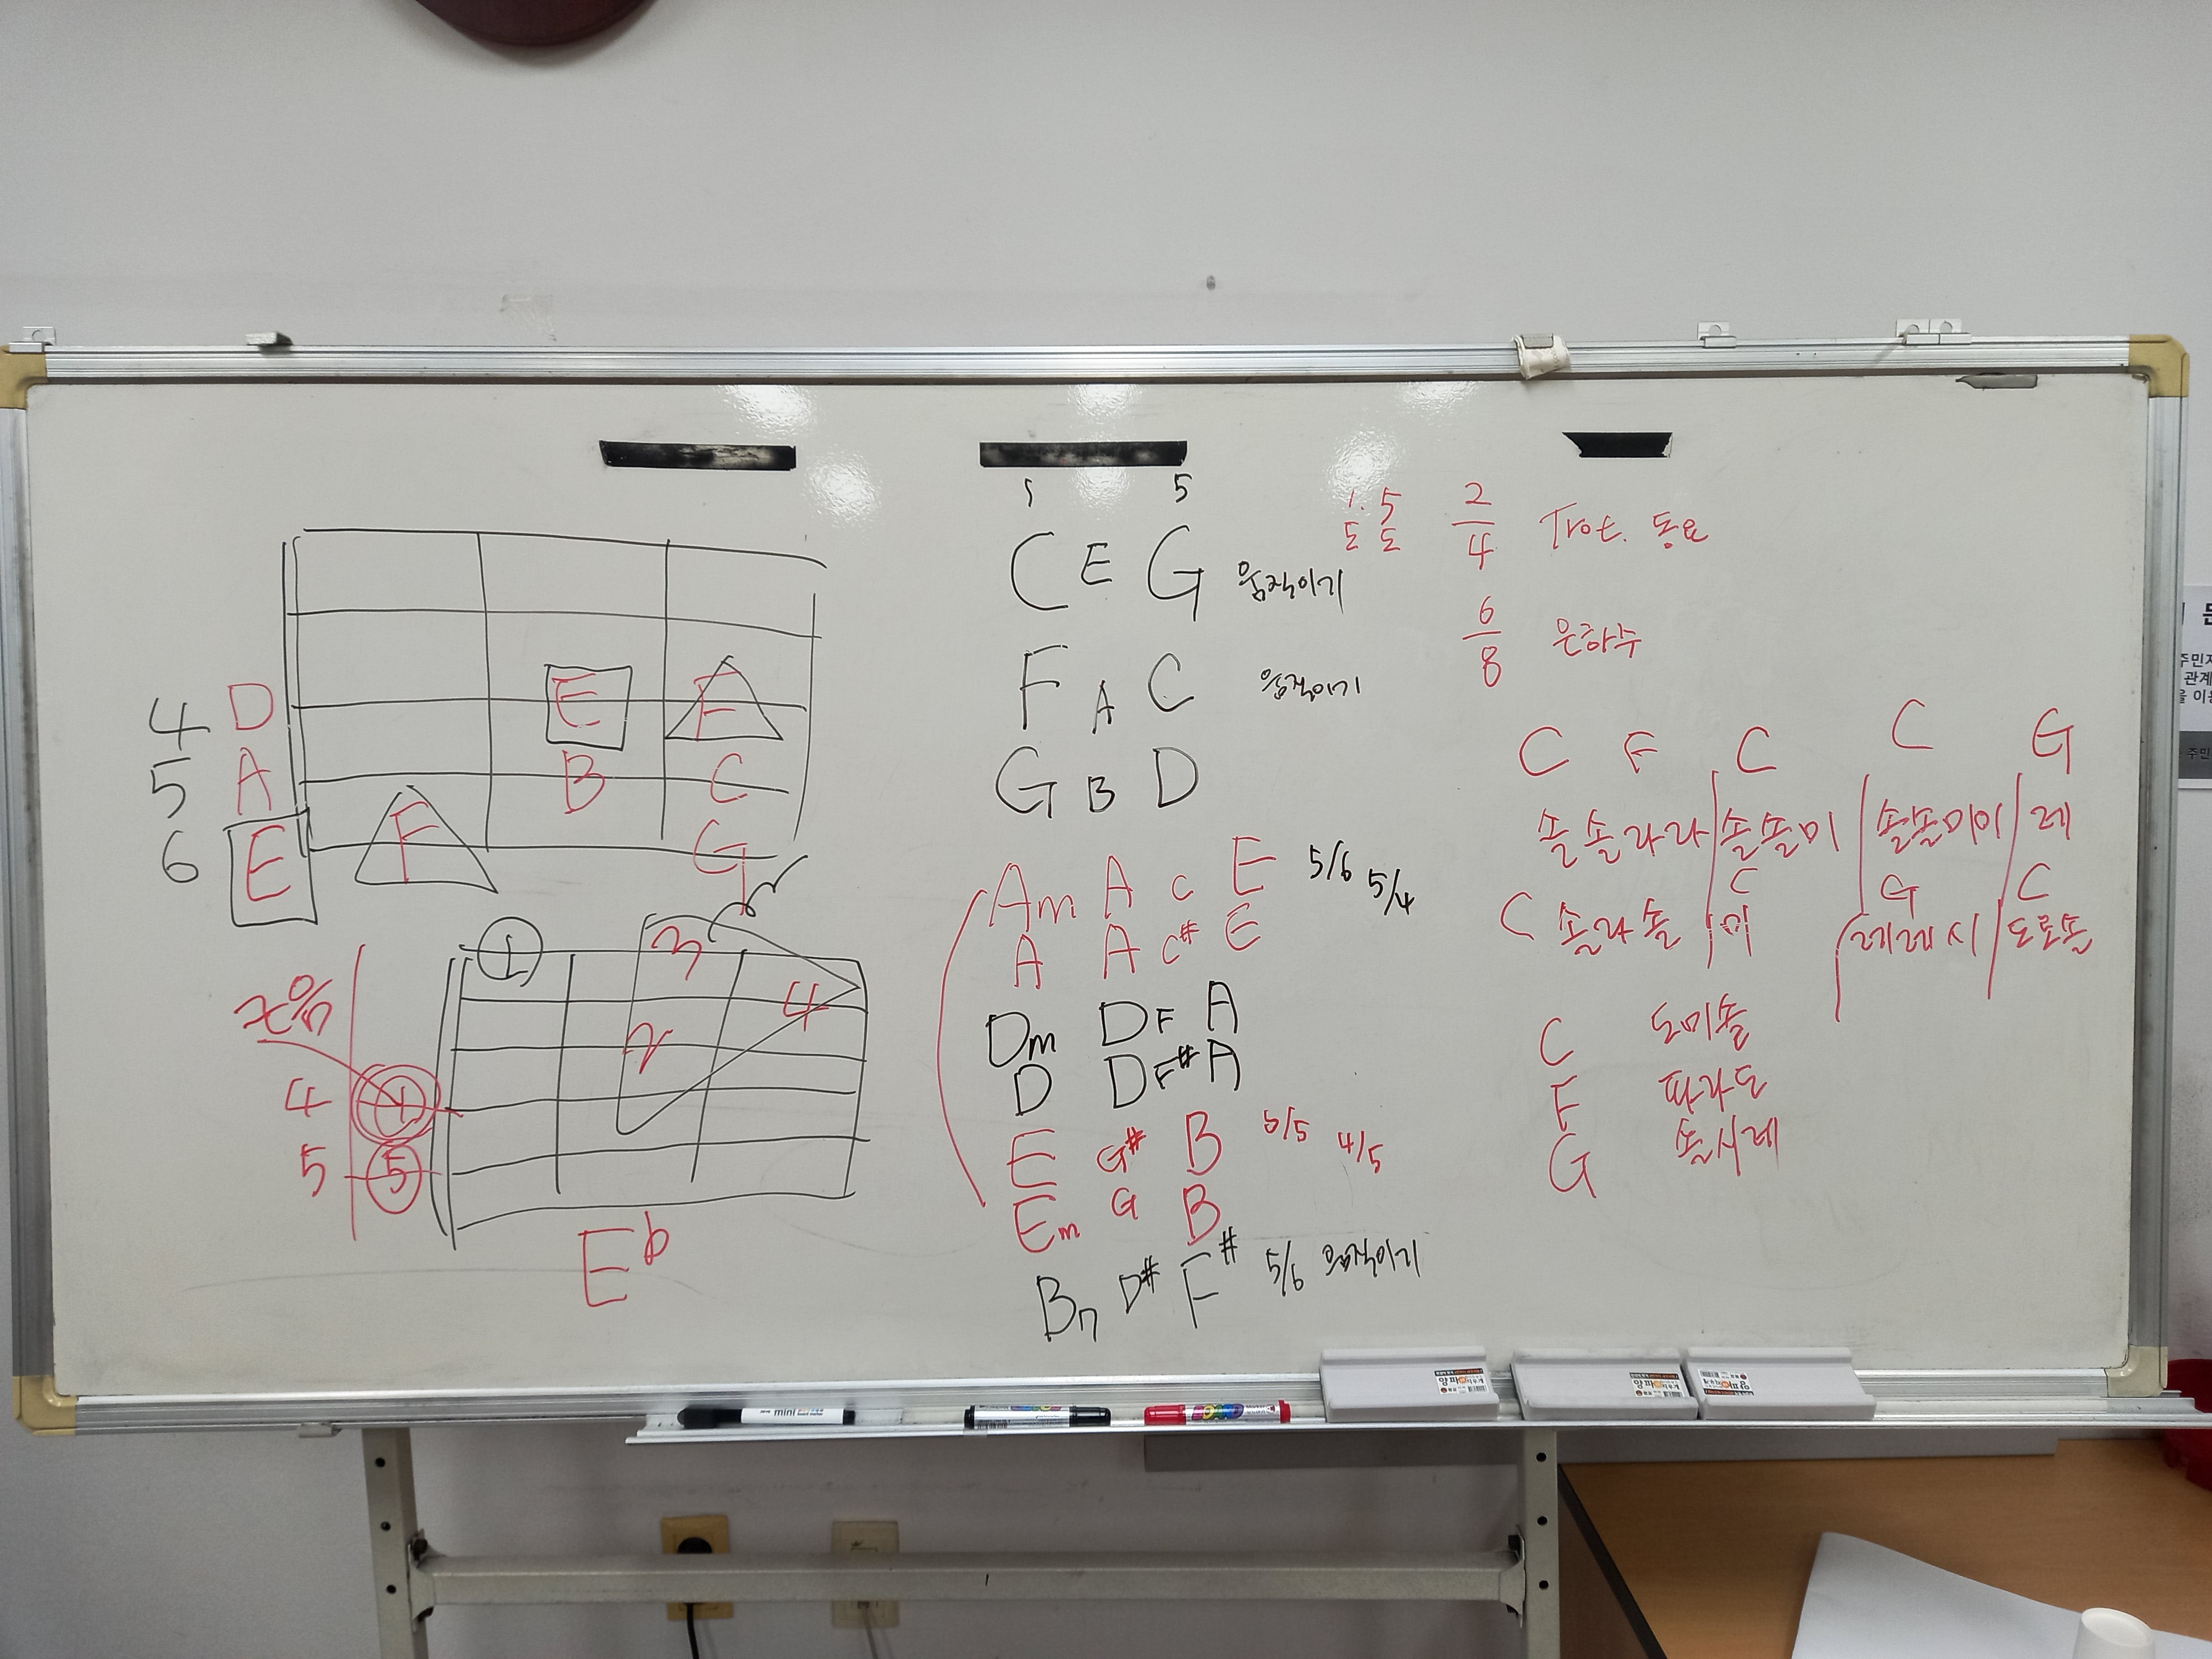 4 D E F
5 A B C
6 E F G
1
3
4
2
근음
4 1
5 5
E♭
1 5
C E G 움직이기
F A C 움직이기
G B D
Am A C E 5/6 5/4
A A C# E
Dm D F A
D D F# A
E G# B 6/5 4/5
Em G B
B7 D# F# 5/6 움직이기
1. 5
도 도
2/4 Trot. 동요
6/8 은하수
C F C C G
솔솔라라 | 솔솔미 | 솔솔미미 | 레
C G C
C 솔라솔 | 미 | 레레시 | 도로솔
C 도미솔
F 파라도
G 솔시레
mini
양파
양파